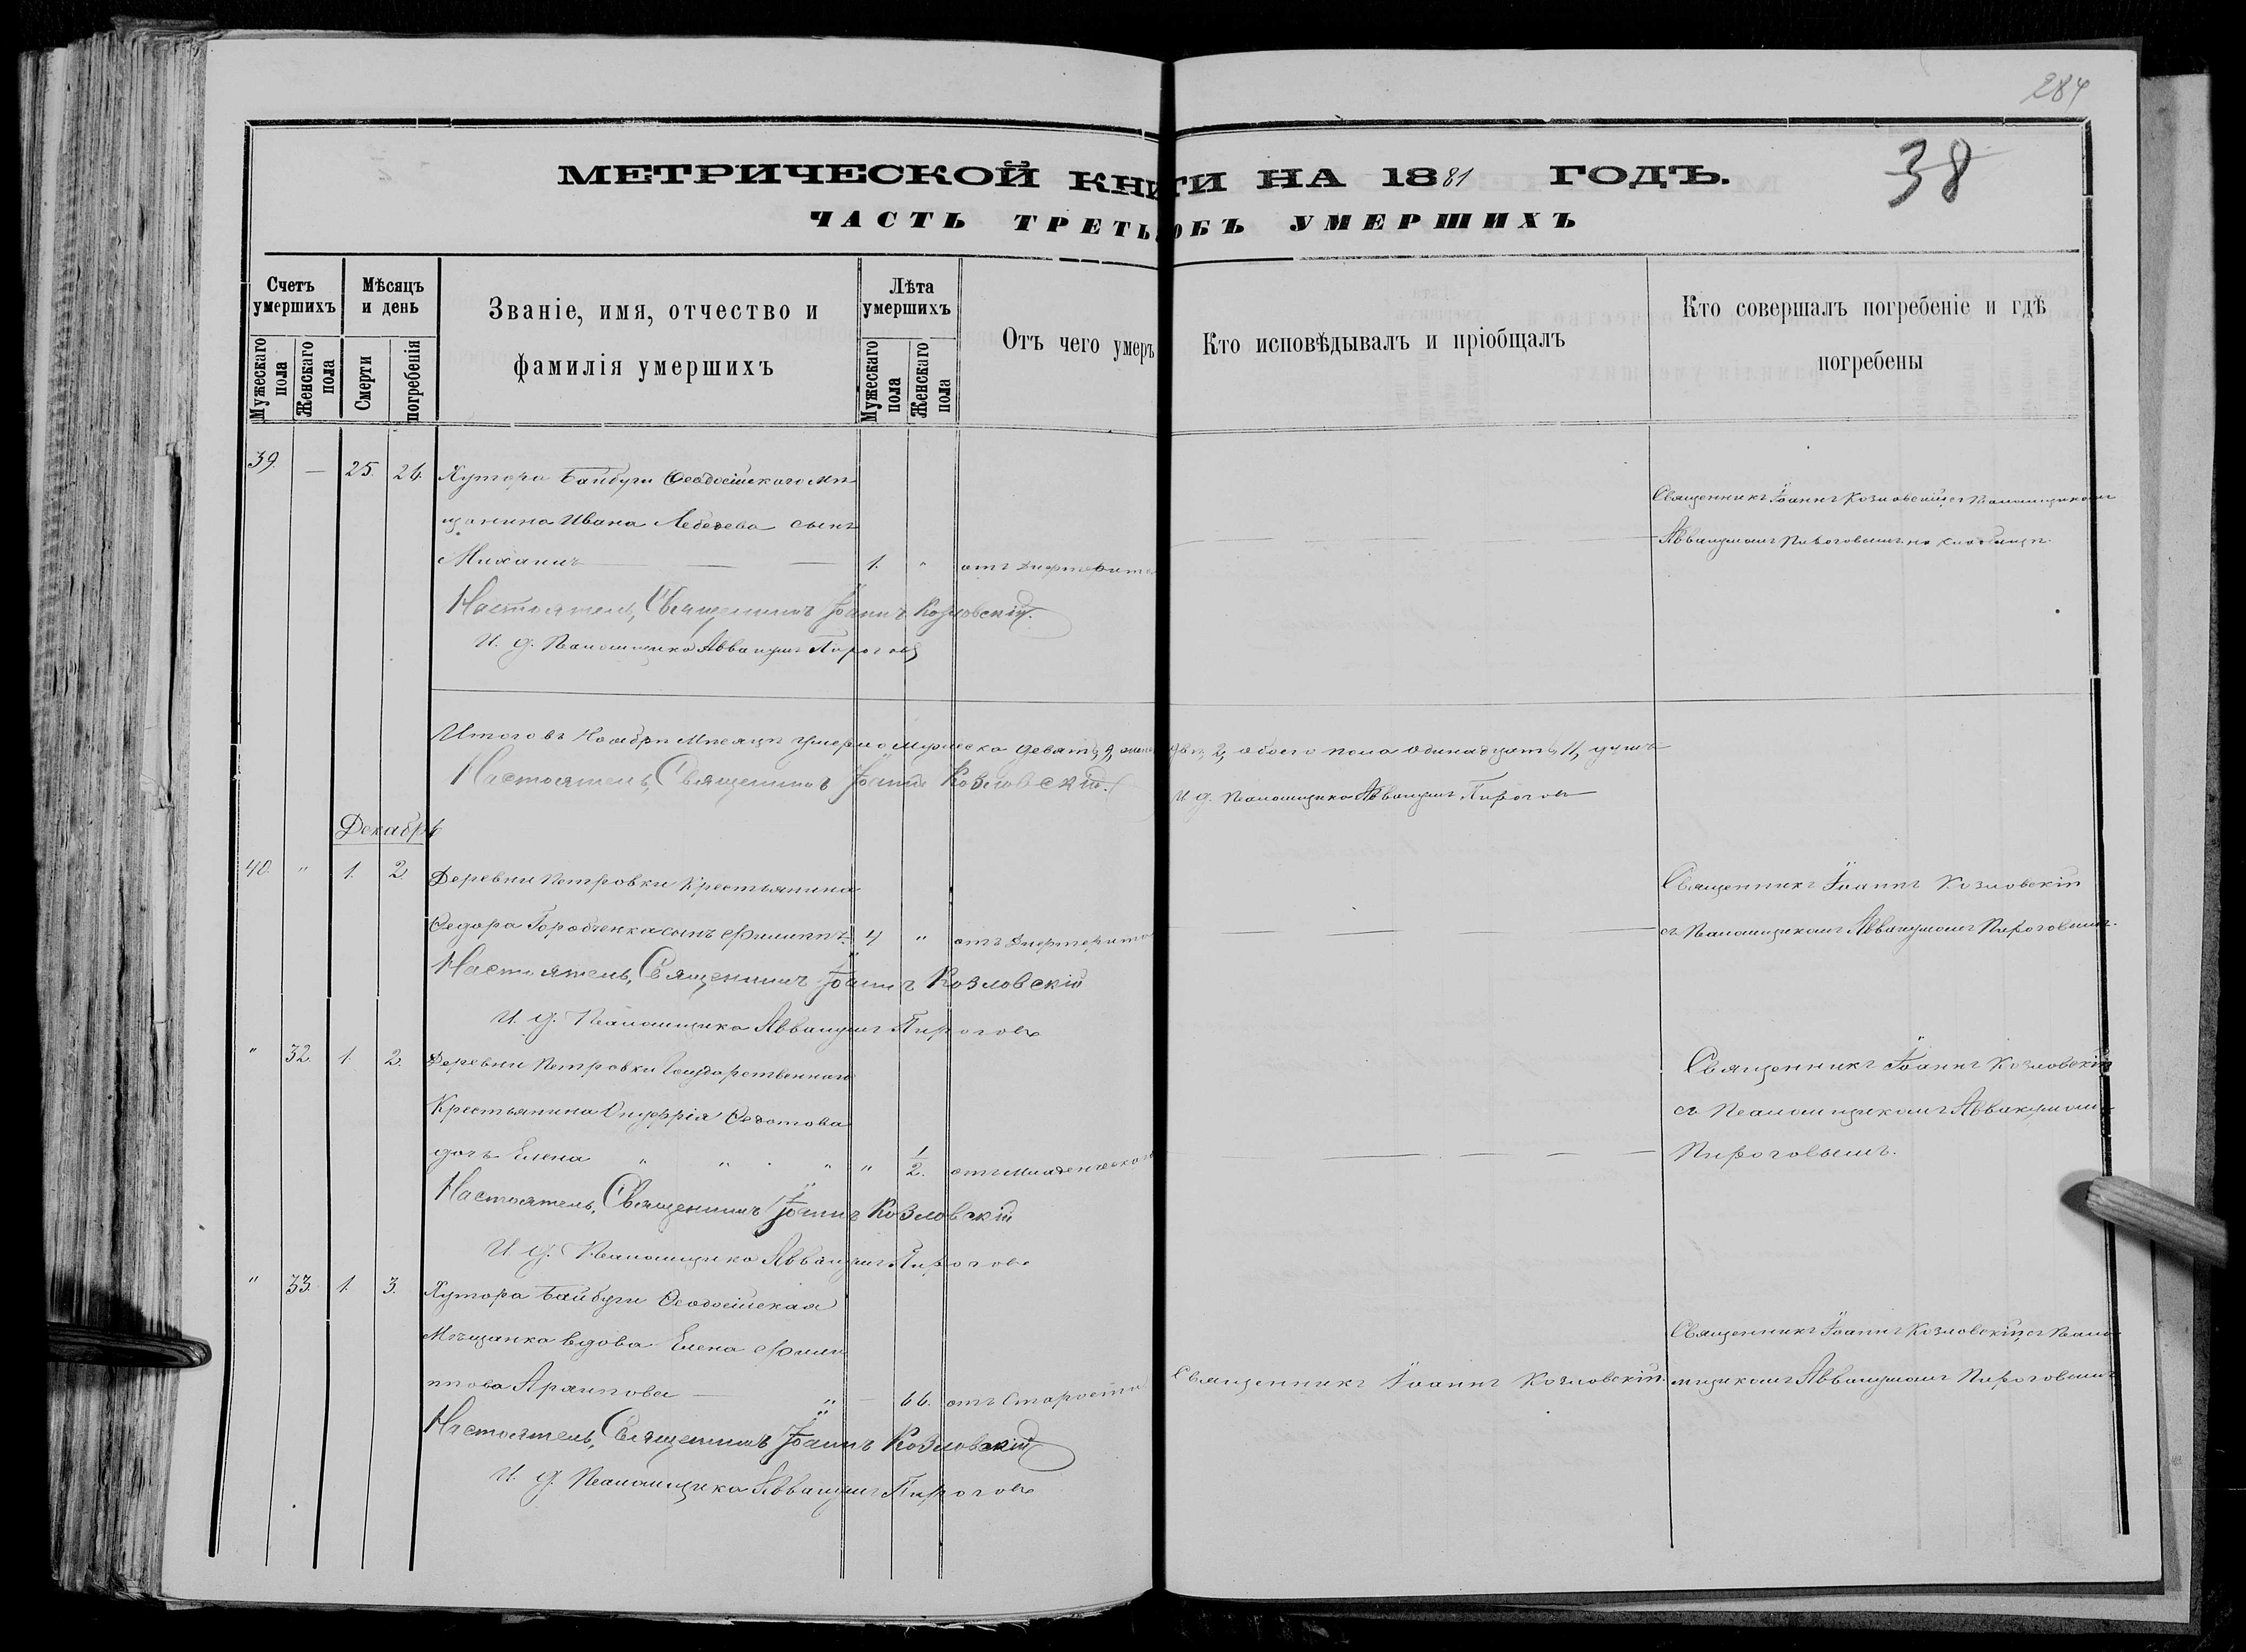 284
38
МЕТРИЧЕСКОЙ КНИГИ НА 1881 ГОДЪ.
ЧАСТЬ ТРЕТЬ ОБЪ УМЕРШИХЪ
Счетъ умершихъ
Мужескаго пола
Женскаго пола
Мѣсяцъ и день
Смерти
погребенія
Званіе, имя, отчество и фамилія умершихъ
Лѣта умершихъ
Мужескаго пола
Женскаго пола
Отъ чего умеръ
Кто исповѣдывалъ и пріобщалъ
Кто совершалъ погребеніе и гдѣ погребены
39. — 25. 26. Хутора Байбуги Ѳеодосійскаго мѣ
щанина Ивана Лебедева сынъ
Михаилъ — — — 1. " отъ Дифтерита
Священникъ Іоаннъ Козловскій съ Псаломщикомъ
Аввакумомъ Пироговымъ на кладбищѣ.
Настоятель, Священникъ Іоаннъ Козловскій.
И. д. Псаломщика Аввакумъ Пироговъ
Итого въ Ноябрѣ Мѣсяцѣ умерло мужеска девять, 9, женска двѣ, 2, обоего пола одинадцать, 11, душъ
Настоятель, Священникъ Іоаннъ Козловскій.
И. д. Псаломщика Аввакумъ Пироговъ
Декабрь
40. " 1. 2. Деревни Петровки Крестьянина
Ѳедора Горобченка сынъ Филиппъ 4 " отъ Дифтерита
Священникъ Іоаннъ Козловскій
съ Псаломщикомъ Аввакумомъ Пироговымъ.
Настоятель, Священникъ Іоаннъ Козловскій
И. д. Псаломщика Аввакумъ Пироговъ
" 32. 1. 2. Деревни Петровки Государственнаго
Крестьянина Онуфрія Ѳедотова
дочь Елена " " " " " 1/2. отъ младенческой
Священникъ Іоаннъ Козловскій
съ Псаломщикомъ Аввакумомъ
Пироговымъ.
Настоятель, Священникъ Іоаннъ Козловскій
И. д. Псаломщика Аввакумъ Пироговъ
" 33. 1. 3. Хутора Байбуги Ѳеодосійская
Мѣщанка вдова Елена Фили
ппова Архипова — " — 66. отъ Старости
Священникъ Іоаннъ Козловскій.
Священникъ Іоаннъ Козловскій съ Псало
мщикомъ Аввакумомъ Пироговымъ
Настоятель, Священникъ Іоаннъ Козловскій
И. д. Псаломщика Аввакумъ Пироговъ